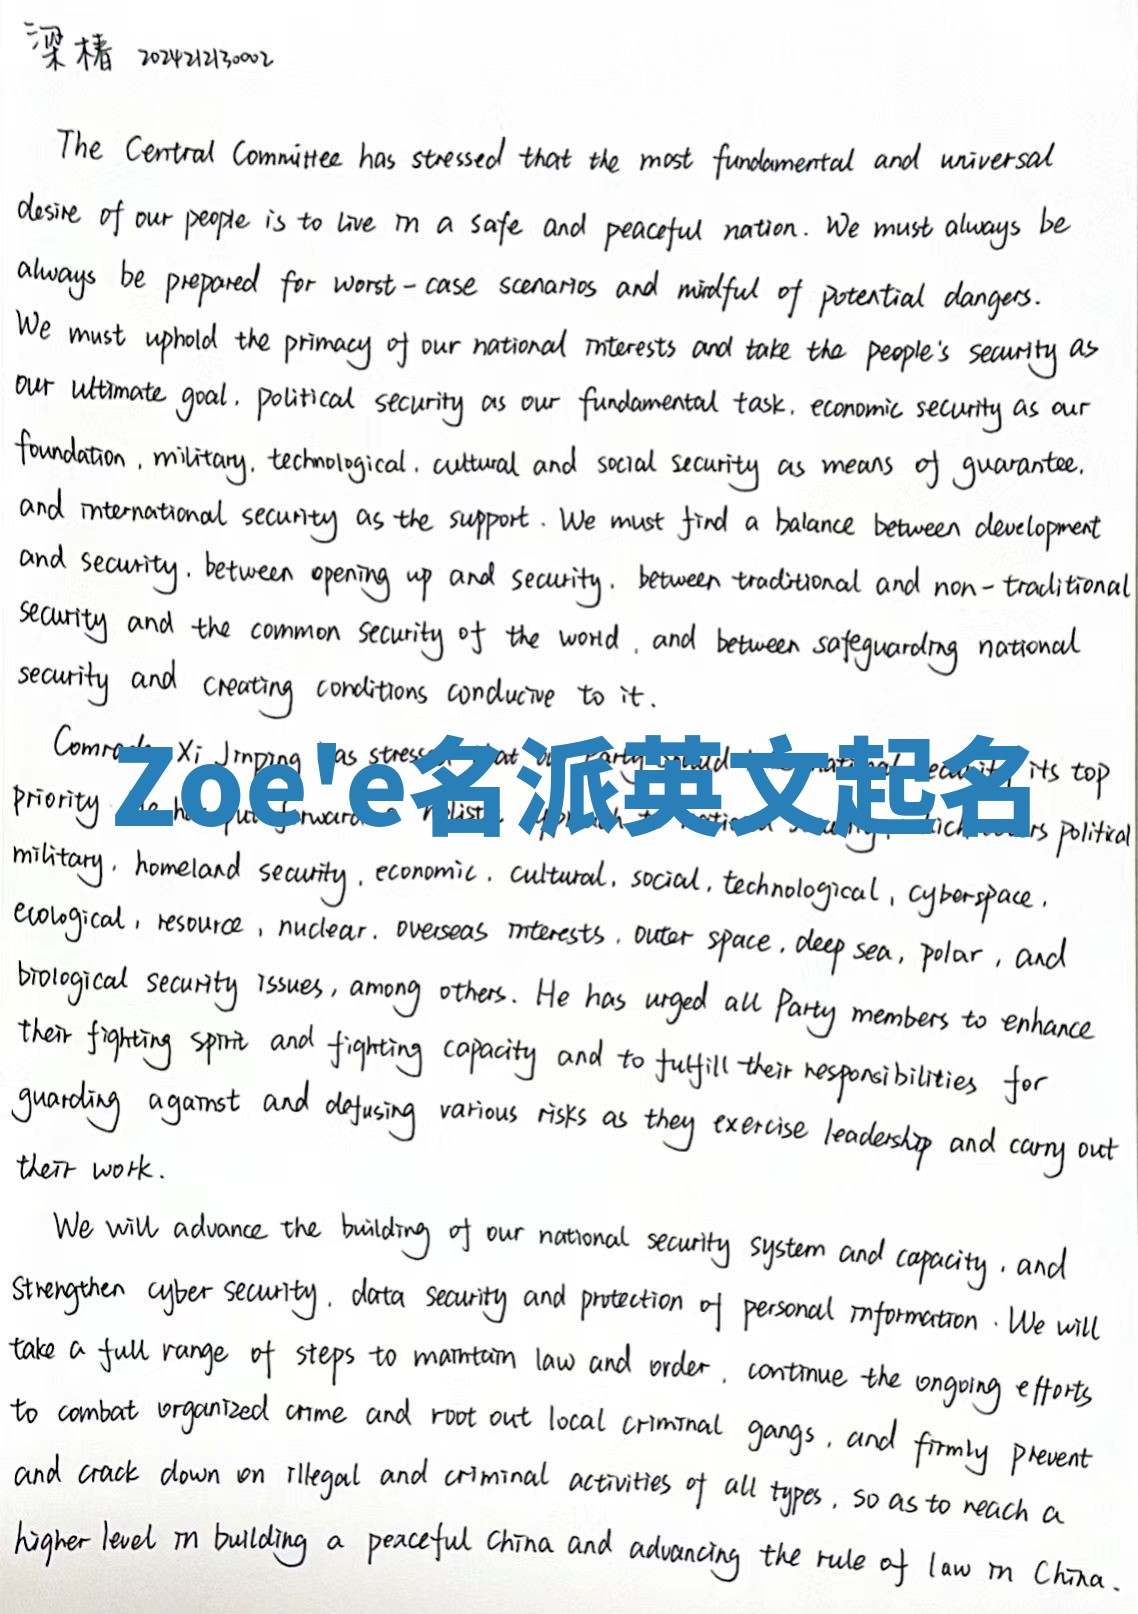 梁椿 2024212130002
The Central Committee has stressed that the most fundamental and universal
desire of our people is to live in a safe and peaceful nation. We must always be
always be prepared for worst-case scenarios and mindful of potential dangers.
We must uphold the primacy of our national interests and take the people's security as
our ultimate goal, political security as our fundamental task, economic security as our
foundation, military, technological, cultural and social security as means of guarantee,
and international security as the support. We must find a balance between development
and security, between opening up and security, between traditional and non-traditional
security and the common security of the world, and between safeguarding national
security and creating conditions conducive to it.
Comrade Xi Jinping has stressed that our Party should national security its top
Zoe'e名派英文起名
priority He has put forward a holistic approach to national security, which covers political
military, homeland security, economic, cultural, social, technological, cyberspace,
ecological, resource, nuclear, overseas interests, outer space, deep sea, polar, and
biological security issues, among others. He has urged all Party members to enhance
their fighting spirit and fighting capacity and to fulfill their responsibilities for
guarding against and defusing various risks as they exercise leadership and carry out
their work.
We will advance the building of our national security system and capacity, and
strengthen cyber security, data security and protection of personal information. We will
take a full range of steps to maintain law and order, continue the ongoing efforts
to combat organized crime and root out local criminal gangs, and firmly prevent
and crack down on illegal and criminal activities of all types, so as to reach a
higher level in building a peaceful China and advancing the rule of law in China.